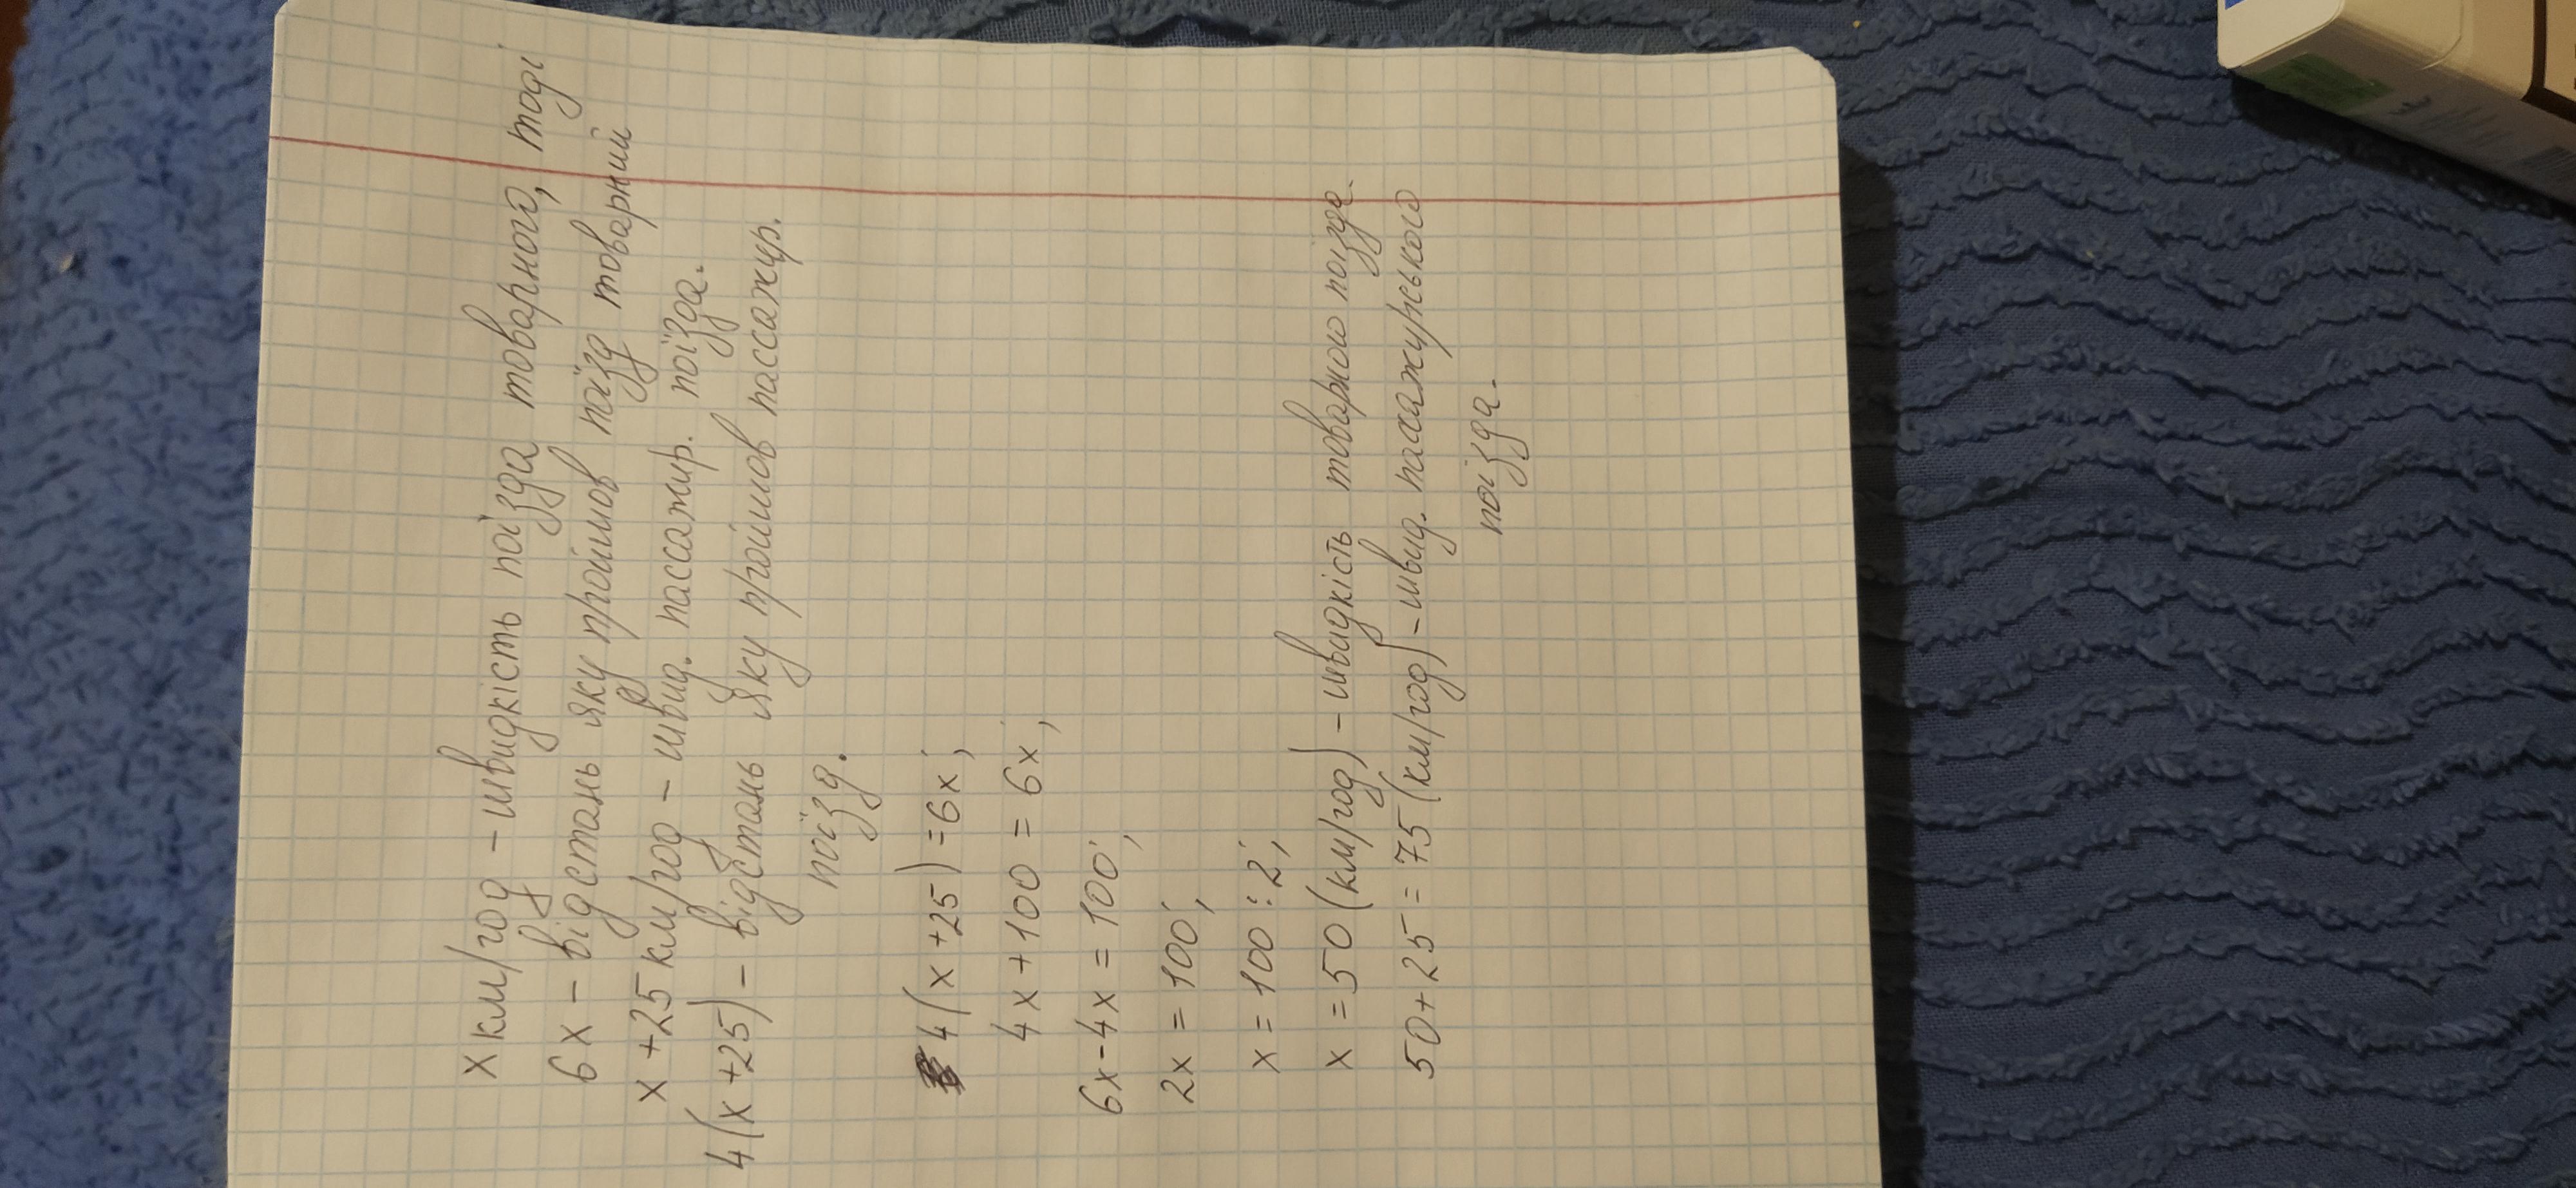 х км/год - швидкість поїзда товарного, тоді
6х - відстань яку пройшов поїзд товарний
х + 25 км/год - швид. пассажир. поїзда.
4(х+25) - відстань яку пройшов пассажир.
поїзд.
4(х+25)=6х;
4х+100=6х;
6х-4х=100;
2х=100;
х=100:2;
х=50(км/год)-швидкість товарного поїзда.
50+25=75(км/год)-швид. пасажирського
поїзда.